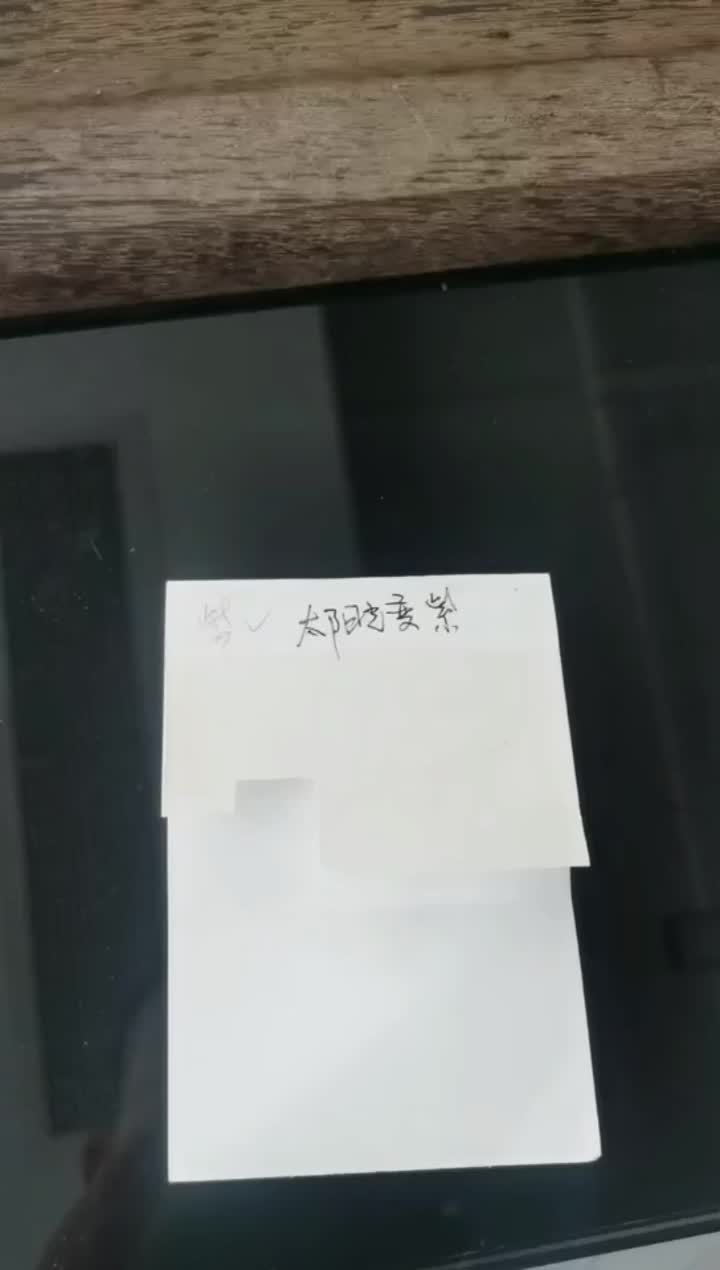 太阳晒变紫